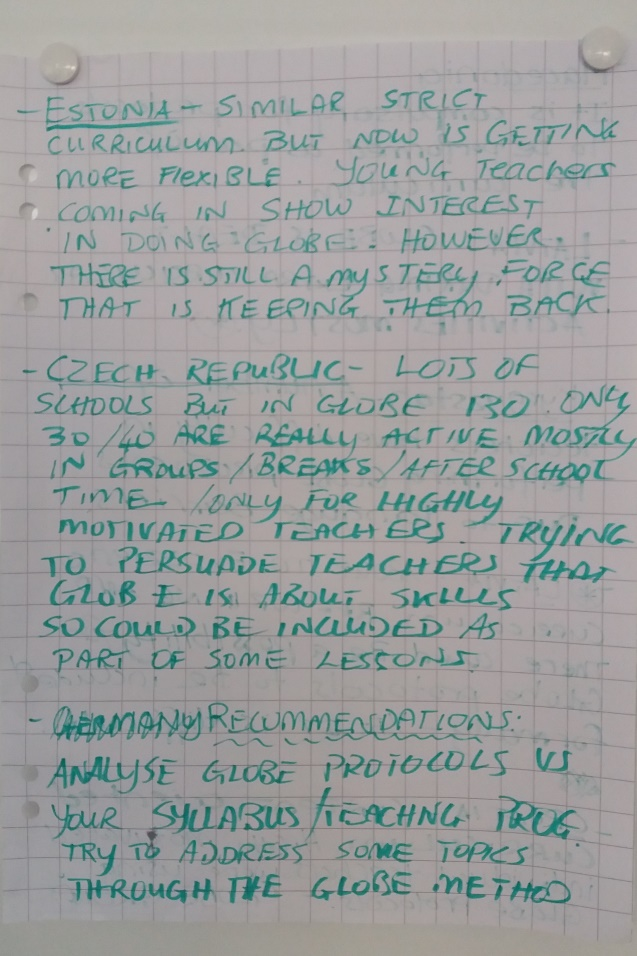 - ESTONIA - SIMILAR, STRICT
CURRICULUM. BUT NOW IS GETTING
MORE FLEXIBLE. YOUNG Teachers
COMING IN SHOW INTEREST
IN DOING GLOBE. HOWEVER.
THERE IS STILL A MYSTERY FORCE
THAT IS KEEPING THEM BACK.
- CZECH REPUBLIC - LOTS OF
SCHOOLS BUT IN GLOBE 130. ONLY
30/40 ARE REALLY ACTIVE MOSTLY
IN GROUPS/BREAKS/AFTER SCHOOL
TIME /ONLY FOR HIGHLY
MOTIVATED TEACHERS. TRYING
TO PERSUADE TEACHERS THAT
GLOBE IS ABOUT SKILLS
SO COULD BE INCLUDED AS
PART OF SOME LESSONS.
- GERMANY RECUMMENDATIONS:
ANALYSE GLOBE PROTOCOLS VS
YOUR SYLLABUS/TEACHNG PROG.
TRY TO ADDRESS SOME TOPICS
THROUGH THE GLOBE METHOD